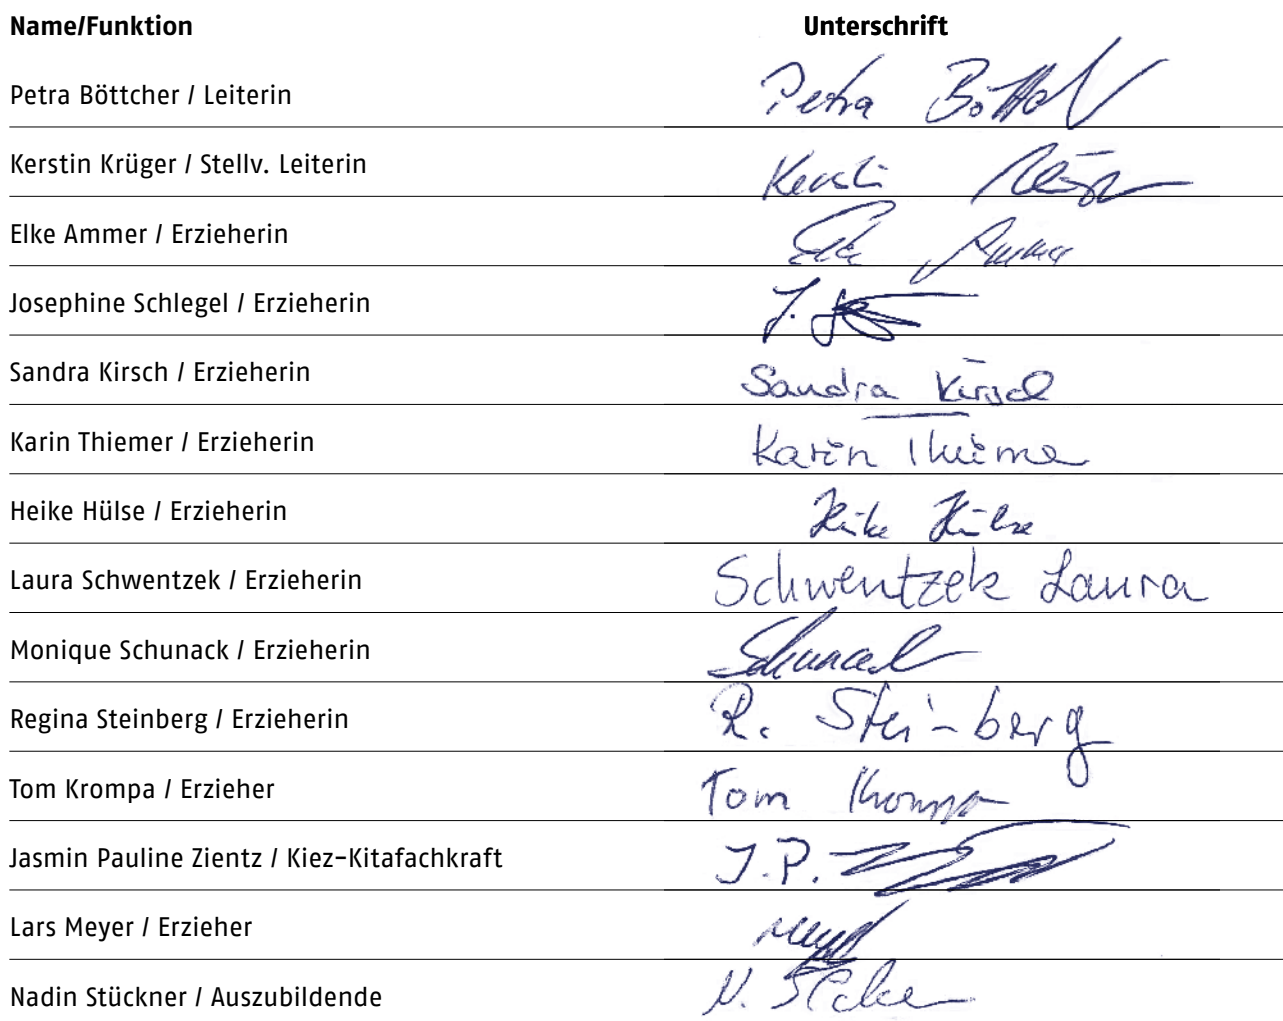 Name/Funktion Unterschrift
Petra Böttcher / Leiterin Petra
Kerstin Krüger / Stellv. Leiterin
Elke Ammer / Erzieherin
Josephine Schlegel / Erzieherin J.
Sandra Kirsch / Erzieherin Sandra Kirsch
Karin Thiemer / Erzieherin Karin
Heike Hülse / Erzieherin Heike Hülse
Laura Schwentzek / Erzieherin Schwentzek Laura
Monique Schunack / Erzieherin Schunack
Regina Steinberg / Erzieherin R. Steinberg
Tom Krompa / Erzieher Tom Krompa
Jasmin Pauline Zientz / Kiez-Kitafachkraft J.P.
Lars Meyer / Erzieher
Nadin Stückner / Auszubildende N.